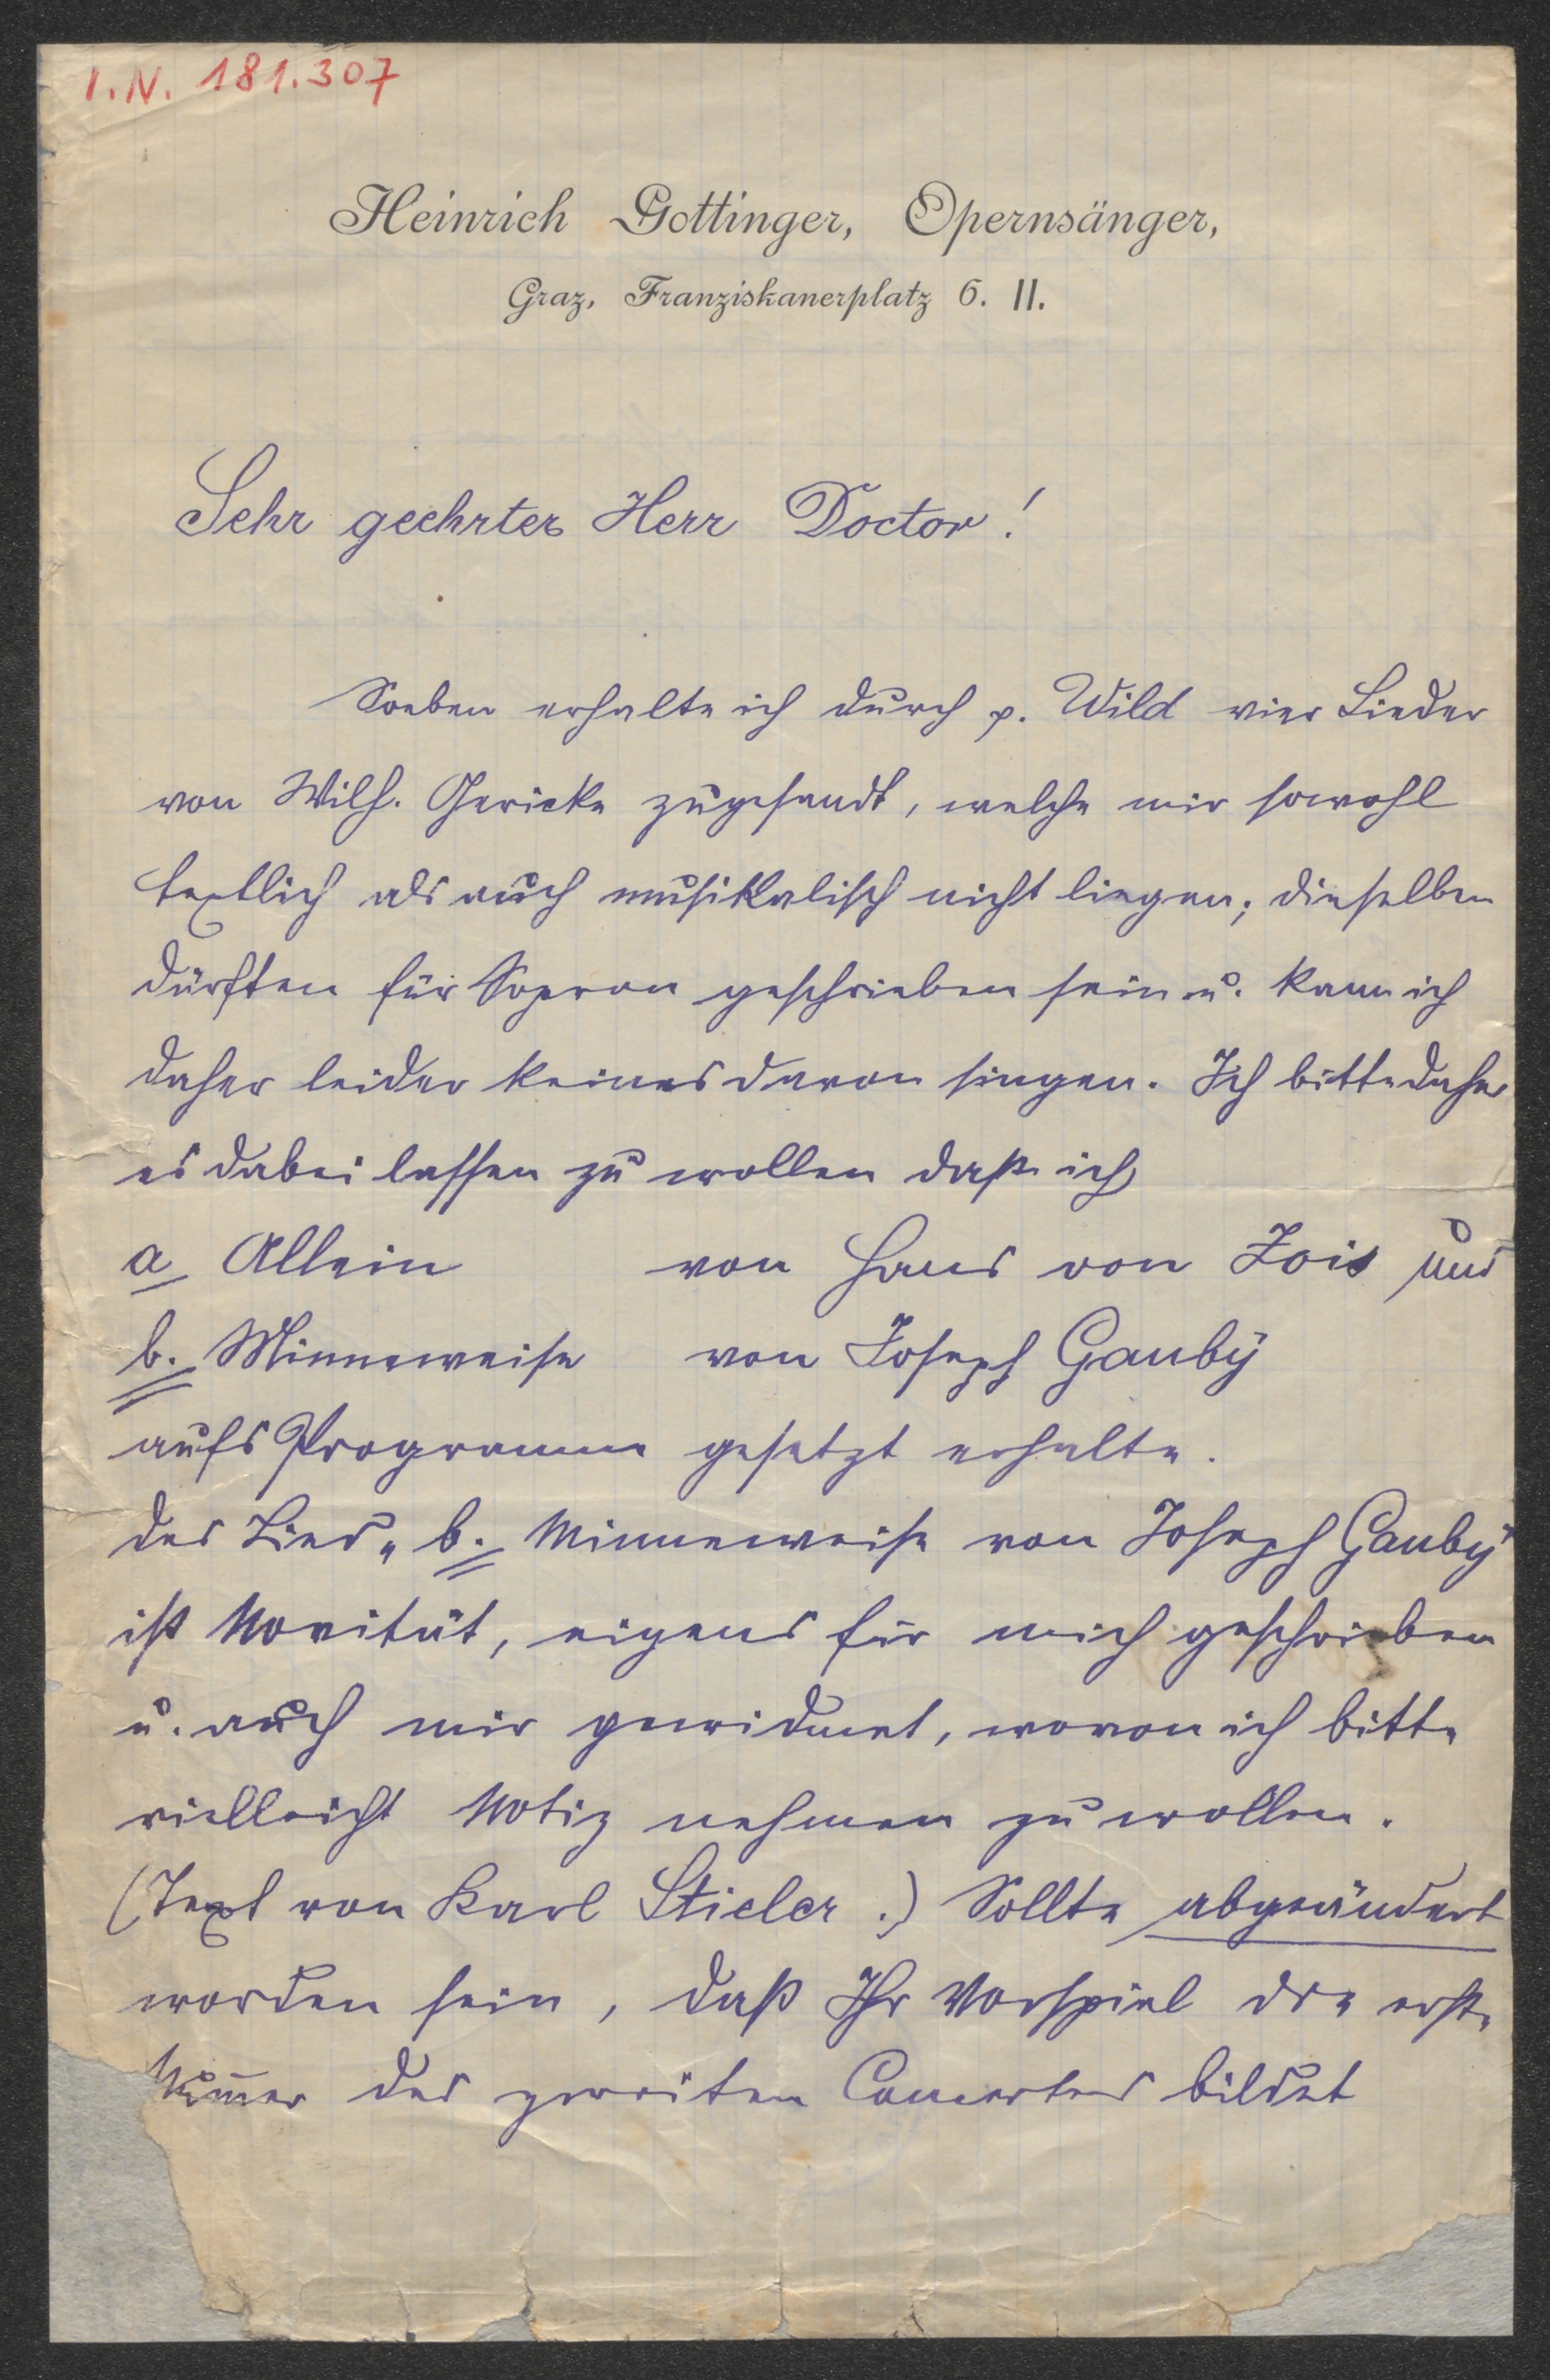 I.N. 181.307
Heinrich Gottinger, Opernsänger,
Graz, Franziskanerplatz 6. II.
Sehr geehrter Herr Doctor!
Soeben erhalte ich durch p. Wild vier Lieder
von Wilh. Gericke zugesandt, welche mir sowohl
textlich als auch musikalisch nicht liegen; dieselben
dürften für Sopran geschrieben sein u. kann ich
daher leider keines davon singen. Ich bitte daher
es dabei lassen zu wollen daß ich
a Allein von Hans von Zois und
b. Minneweise von Joseph Gauby
aufs Programm gesetzt erhalte.
Das Lied „ b. Minneweise von Joseph Gauby
ist Novität, eigens für mich geschrieben
u. auch mir gewidmet, wovon ich bitte
vielleicht Notiz nehmen zu wollen.
(Text von Karl Stieler.) Sollte abgeändert
worden sein, daß Ihr Vorspiel die erste
Num̅er des zweiten Concertes bildet